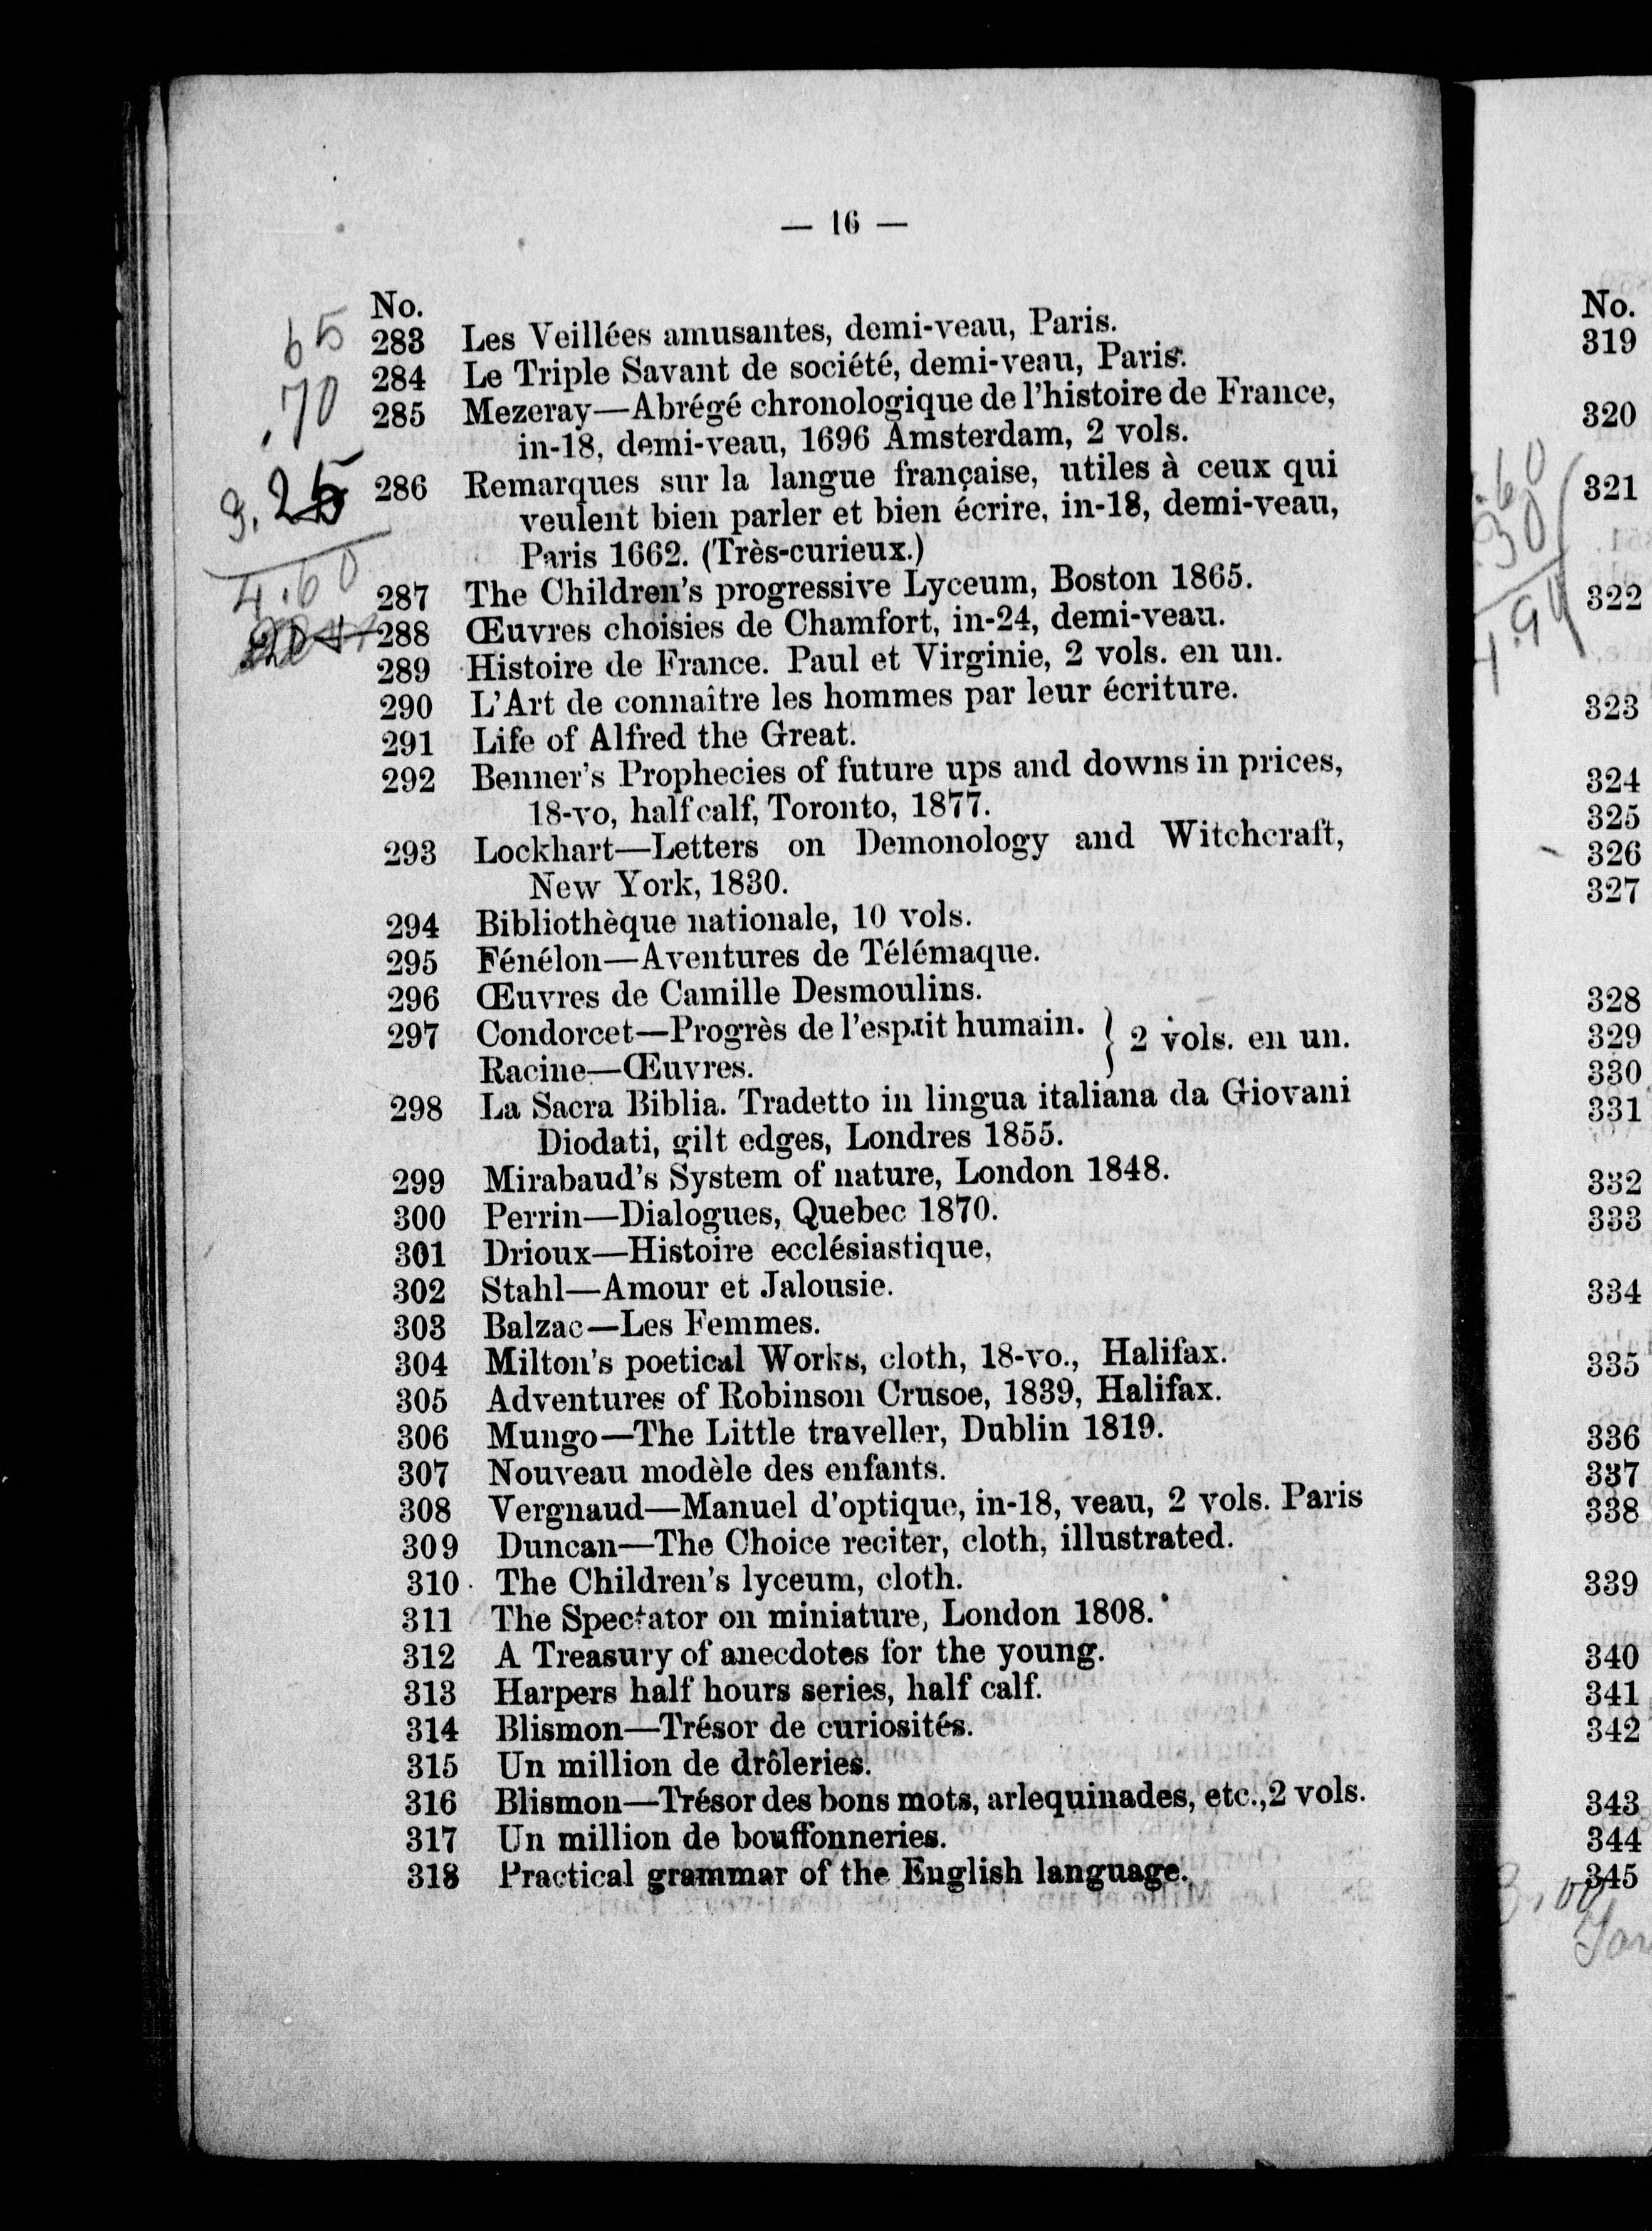 — 16 —
No.
65
283 Les Veillées amusantes, demi-veau, Paris.
284 Le Triple Savant de société, demi-veau, Paris.
.70
285 Mezeray—Abrégé chronologique de l'histoire de France,
in-18, demi-veau, 1696 Amsterdam, 2 vols.
3.25
286 Remarques sur la langue française, utiles à ceux qui
veulent bien parler et bien écrire, in-18, demi-veau,
Paris 1662. (Très-curieux.)
4.60
287 The Children's progressive Lyceum, Boston 1865.
288 Œuvres choisies de Chamfort, in-24, demi-veau.
289 Histoire de France. Paul et Virginie, 2 vols. en un.
290 L'Art de connaître les hommes par leur écriture.
291 Life of Alfred the Great.
292 Benner's Prophecies of future ups and downs in prices,
18-vo, half calf, Toronto, 1877.
293 Lockhart—Letters on Demonology and Witchcraft,
New York, 1830.
294 Bibliothèque nationale, 10 vols.
295 Fénélon—Aventures de Télémaque.
296 Œuvres de Camille Desmoulins.
297 Condorcet—Progrès de l'esprit humain. } 2 vols. en un.
Racine—Œuvres.
298 La Sacra Biblia. Tradetto in lingua italiana da Giovani
Diodati, gilt edges, Londres 1855.
299 Mirabaud's System of nature, London 1848.
300 Perrin—Dialogues, Quebec 1870.
301 Drioux—Histoire ecclésiastique,
302 Stahl—Amour et Jalousie.
303 Balzac—Les Femmes.
304 Milton's poetical Works, cloth, 18-vo., Halifax.
305 Adventures of Robinson Crusoe, 1839, Halifax.
306 Mungo—The Little traveller, Dublin 1819.
307 Nouveau modèle des enfants.
308 Vergnaud—Manuel d'optique, in-18, veau, 2 vols. Paris
309 Duncan—The Choice reciter, cloth, illustrated.
310 The Children's lyceum, cloth.
311 The Spectator on miniature, London 1808.
312 A Treasury of anecdotes for the young.
313 Harpers half hours series, half calf.
314 Blismon—Trésor de curiosités.
315 Un million de drôleries.
316 Blismon—Trésor des bons mots, arlequinades, etc., 2 vols.
317 Un million de bouffonneries.
318 Practical grammar of the English language.
No.
319
320
321
322
323
324
325
326
327
328
329
330
331
332
333
334
335
336
337
338
339
340
341
342
343
344
345